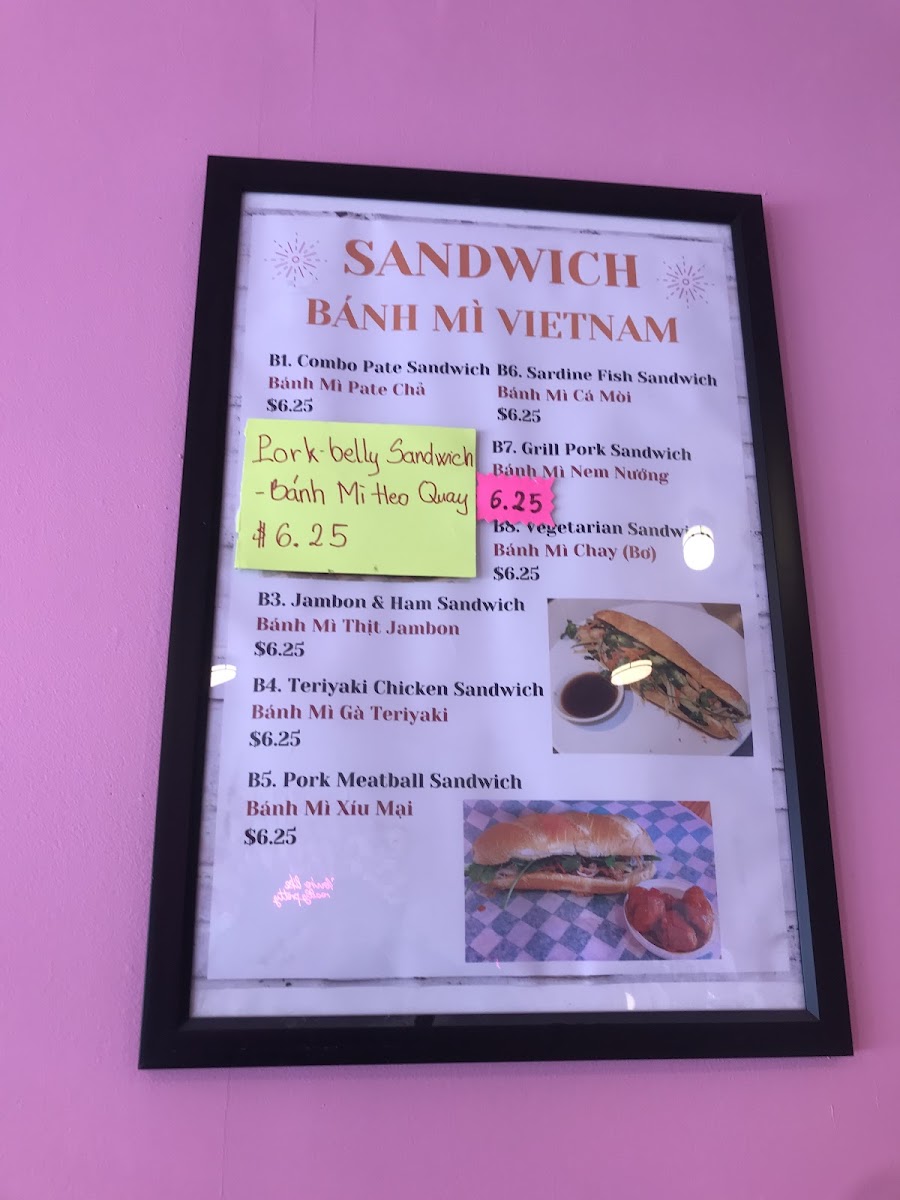 SANDWICH
BÁNH MÌ VIETNAM
B1. Combo Pate Sandwich
Bánh Mì Pate Chả
$6.25
Pork-belly Sandwich
-Bánh Mì Heo Quay
$6.25
B3. Jambon & Ham Sandwich
Bánh Mì Thịt Jambon
$6.25
B4. Teriyaki Chicken Sandwich
Bánh Mì Gà Teriyaki
$6.25
B5. Pork Meatball Sandwich
Bánh Mì Xíu Mại
$6.25
B6. Sardine Fish Sandwich
Bánh Mì Cá Mòi
$6.25
B7. Grill Pork Sandwich
Bánh Mì Nem Nướng
6.25
B8. Vegetarian Sandwi
Bánh Mì Chay (Bơ)
$6.25